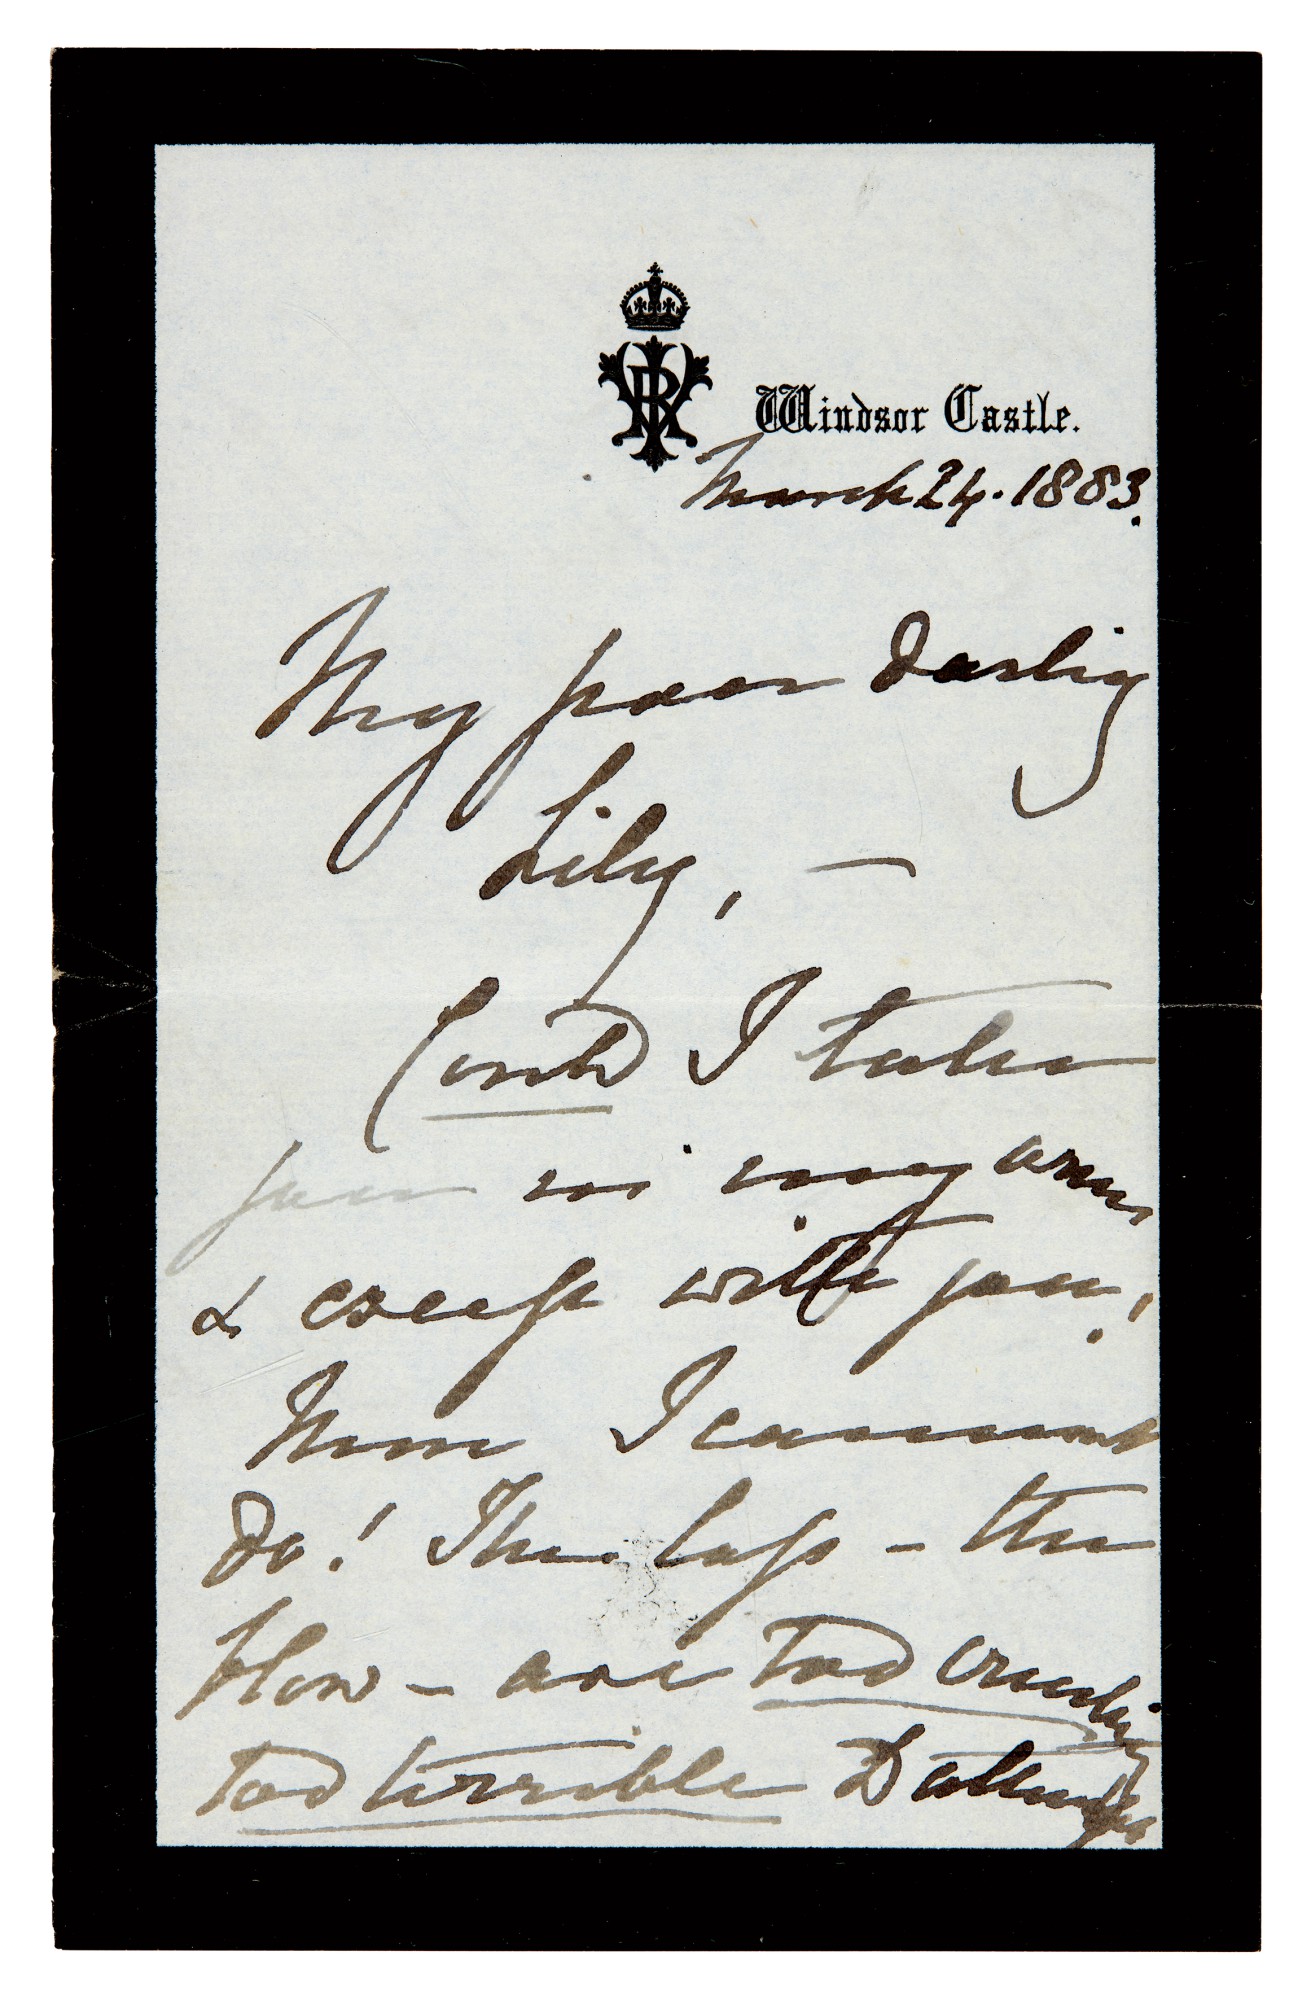 VRI
Windsor Castle.
March 24. 1883.
My poor darling
Lily, —
Could I take
you in my arms
& weep with you!
More I cannot
do! The loss – the
blow – are too crushing
too terrible